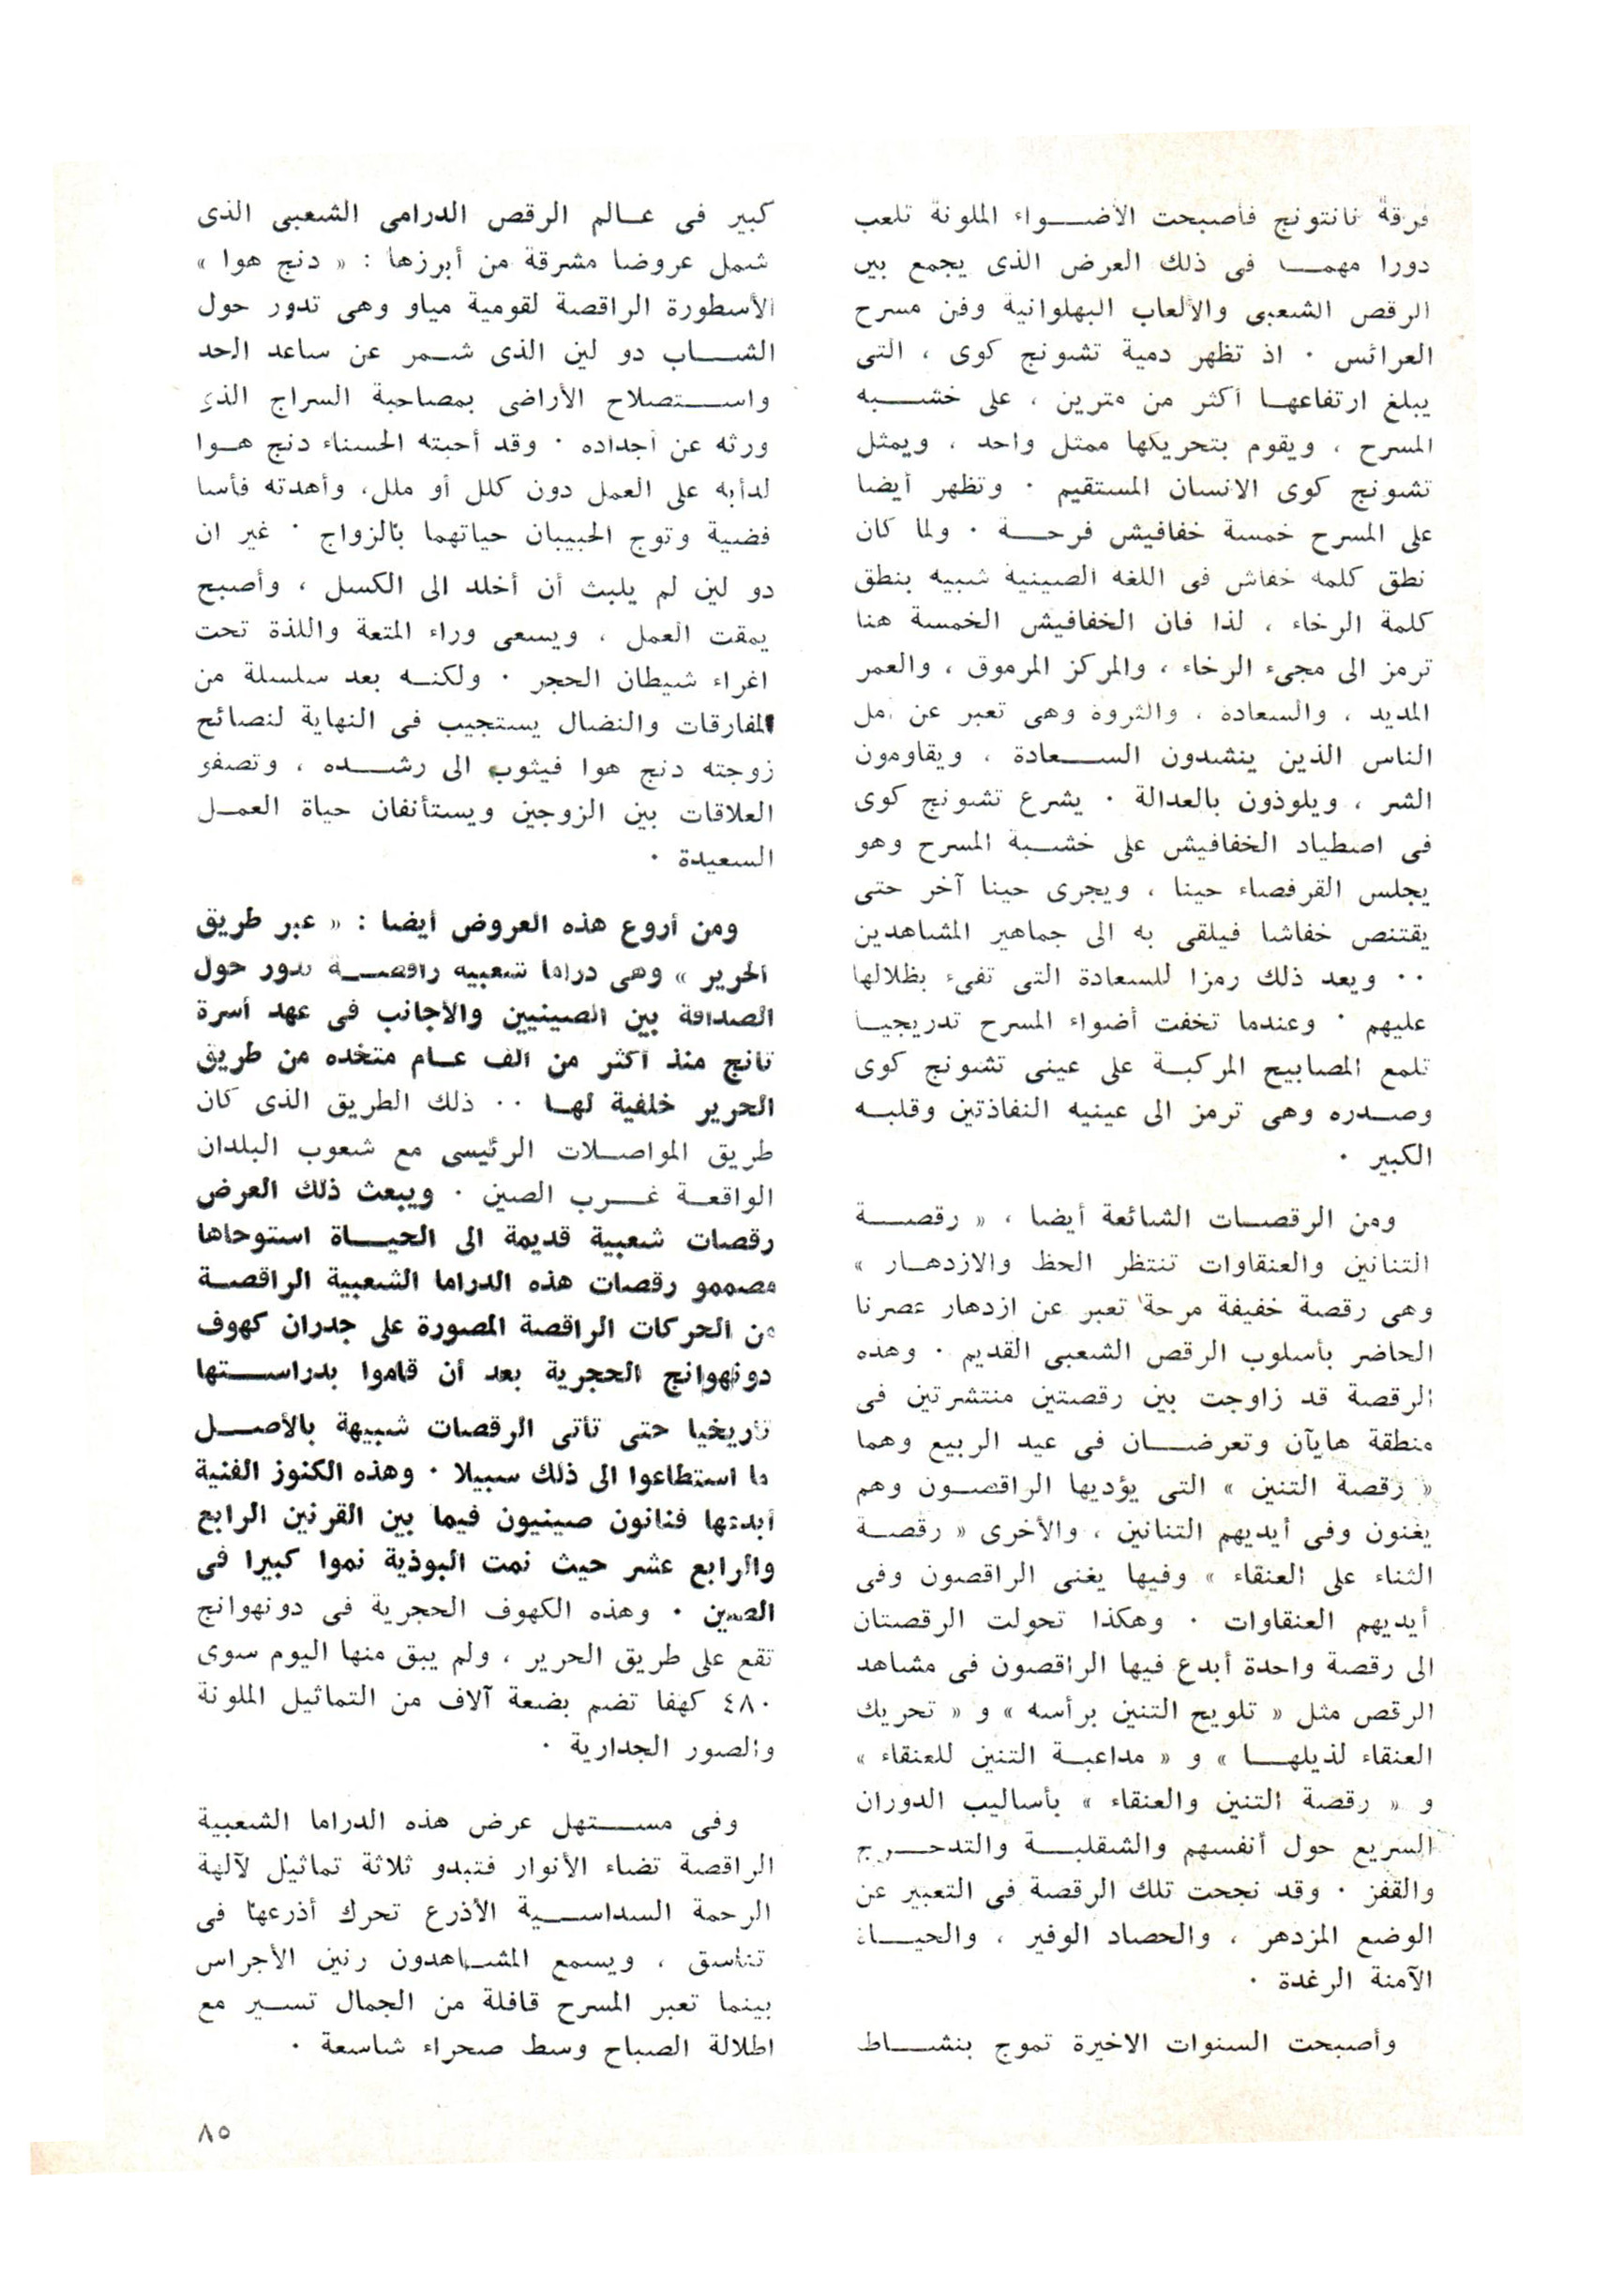 فرقة نانتونج فأصبحت الأضواء الملونة تلعب
دورا مهما فى ذلك العرض الذى يجمع بين
الرقص الشعبى والألعاب البهلوانية وفن مسرح
العرائس ٠ اذ تظهر دمية تشونج كوى ، التى
يبلغ ارتفاعها أكثر من مترين ، على خشبه
المسرح ، ويقوم بتحريكها ممثل واحد ، ويمثل
تشونج كوى الانسان المستقيم ٠ وتظهر أيضا
على المسرح خمسة خفافيش فرحة ٠ ولما كان
نطق كلمه خفاش فى اللغه الصينية شبيه بنطق
كلمة الرخاء ، لذا فان الخفافيش الخمسة هنا
ترمز الى مجىء الرخاء ، والمركز المرموق ، والعمر
المديد ، والسعادة ، والثروة وهى تعبر عن أمل
الناس الذين ينشدون السعادة ، ويقاومون
الشر ، ويلوذون بالعدالة ٠ يشرع تشونج كوى
فى اصطياد الخفافيش على خشبة المسرح وهو
يجلس القرفصاء حينا ، ويجرى حينا آخر حتى
يقتنص خفاشا فيلقى به الى جماهير المشاهدين
٠٠ ويعد ذلك رمزا للسعادة التى تفىء بظلالها
عليهم ٠ وعندما تخفت أضواء المسرح تدريجيا
تلمع المصابيح المركبة على عينى تشونج كوى
وصدره وهى ترمز الى عينيه النفاذتين وقلبه
الكبير ٠
ومن الرقصات الشائعة أيضا ، « رقصة
التنانين والعنقاوات تنتظر الحظ والازدهار »
وهى رقصة خفيفة مرحة تعبر عن ازدهار عصرنا
الحاضر بأسلوب الرقص الشعبى القديم ٠ وهذه
الرقصة قد زاوجت بين رقصتين منتشرتين فى
منطقة هايآن وتعرضان فى عيد الربيع وهما
« رقصة التنين » التى يؤديها الراقصون وهم
يغنون وفى أيديهم التنانين ، والأخرى « رقصة
الثناء على العنقاء » وفيها يغنى الراقصون وفى
أيديهم العنقاوات ٠ وهكذا تحولت الرقصتان
الى رقصة واحدة أبدع فيها الراقصون فى مشاهد
الرقص مثل « تلويح التنين برأسه » و « تحريك
العنقاء لذيلها » و « مداعبة التنين للعنقاء »
و « رقصة التنين والعنقاء » بأساليب الدوران
السريع حول أنفسهم والشقلبة والتدحرج
والقفز ٠ وقد نجحت تلك الرقصة فى التعبير عن
الوضع المزدهر ، والحصاد الوفير ، والحياة
الآمنة الرغدة ٠
وأصبحت السنوات الاخيرة تموج بنشاط
كبير فى عالم الرقص الدرامى الشعبى الذى
شمل عروضا مشرقة من أبرزها : « دنج هوا »
الأسطورة الراقصة لقومية مياو وهى تدور حول
الشاب دو لين الذى شمر عن ساعد الجد
واستصلاح الأراضى بمصاحبة السراج الذى
ورثه عن أجداده ٠ وقد أحبته الحسناء دنج هوا
لدأبه على العمل دون كلل أو ملل، وأهدته فأسا
فضية وتوج الحبيبان حياتهما بالزواج ٠ غير ان
دو لين لم يلبث أن أخلد الى الكسل ، وأصبح
يمقت العمل ، ويسعى وراء المتعة واللذة تحت
اغراء شيطان الحجر ٠ ولكنه بعد سلسلة من
المفارقات والنضال يستجيب فى النهاية لنصائح
زوجته دنج هوا فيثوب الى رشده ، وتصفو
العلاقات بين الزوجين ويستأنفان حياة العمل
السعيدة ٠
ومن أروع هذه العروض أيضا : « عبر طريق
الحرير » وهى دراما شعبيه راقصة تدور حول
الصداقة بين الصينيين والأجانب فى عهد أسرة
تانج منذ أكثر من ألف عام متخذه من طريق
الحرير خلفية لها ٠٠ ذلك الطريق الذى كان
طريق المواصلات الرئيسى مع شعوب البلدان
الواقعة غرب الصين ٠ ويبعث ذلك العرض
رقصات شعبية قديمة الى الحياة استوحاها
مصممو رقصات هذه الدراما الشعبية الراقصة
من الحركات الراقصة المصورة على جدران كهوف
دونهوانج الحجرية بعد أن قاموا بدراستها
تاريخيا حتى تأتى الرقصات شبيهة بالأصل
ما استطاعوا الى ذلك سبيلا ٠ وهذه الكنوز الفنية
أبدعها فنانون صينيون فيما بين القرنين الرابع
والرابع عشر حيث نمت البوذية نموا كبيرا فى
الصين ٠ وهذه الكهوف الحجرية فى دونهوانج
تقع على طريق الحرير ، ولم يبق منها اليوم سوى
٤٨٠ كهفا تضم بضعة آلاف من التماثيل الملونة
والصور الجدارية ٠
وفى مستهل عرض هذه الدراما الشعبية
الراقصة تضاء الأنوار فتبدو ثلاثة تماثيل لآلهة
الرحمة السداسية الأذرع تحرك أذرعها فى
تناسق ، ويسمع المشاهدون رنين الأجراس
بينما تعبر المسرح قافلة من الجمال تسير مع
اطلالة الصباح وسط صحراء شاسعة ٠
٨٥